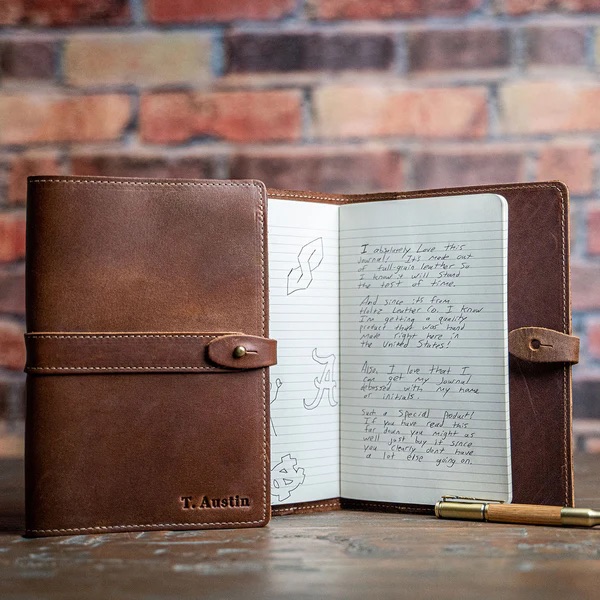 T. Austin
I absolutely Love this
journal! Its made out
of full-grain leather So
I know it will Stand
the test of time.
And since its from
Holtz Leather Co. I know
I'm getting a quality
product that was hand
made right here in
the United States!
Also, I love that I
can get my journal
debossed with my name
or initials.
Such a Special product!
If you have read this
far down you might as
well just buy it since
you clearly dont have
a lot else going on.